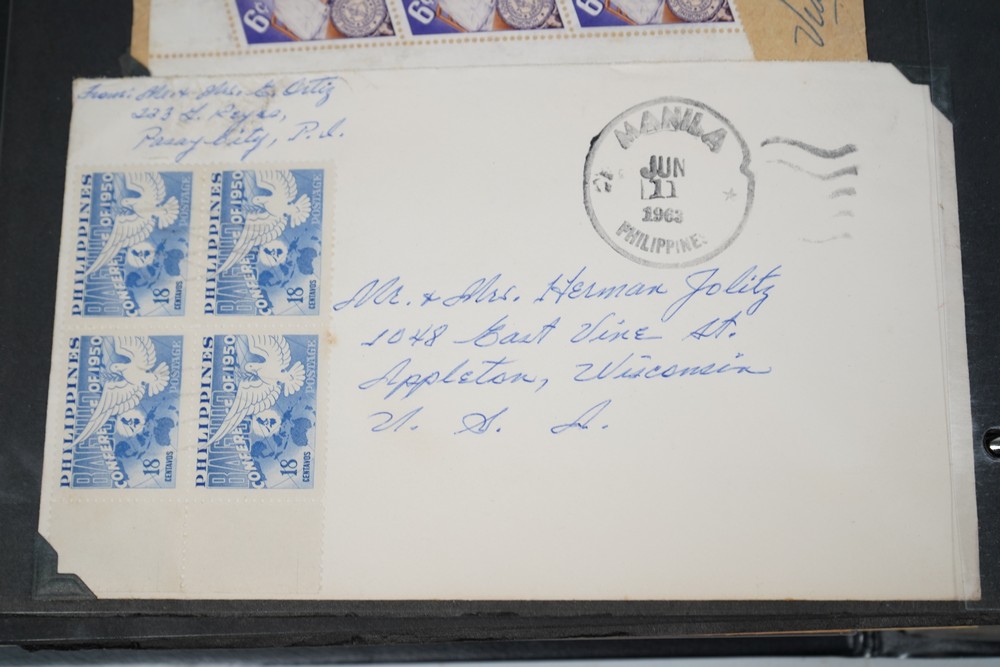 6c
6c
6
From: Mr. & Mrs. E. Ortiz
223 F. Reyes,
Pasay City, P.I.
MANILA
JUN
11
1963
PHILIPPINES
PHILIPPINES
BAGUIO
CONFERENCE OF 1950
POSTAGE
18
CENTAVOS
PHILIPPINES
BAGUIO
CONFERENCE OF 1950
POSTAGE
18
CENTAVOS
PHILIPPINES
BAGUIO
CONFERENCE OF 1950
POSTAGE
18
CENTAVOS
PHILIPPINES
BAGUIO
CONFERENCE OF 1950
POSTAGE
18
CENTAVOS
Mr. & Mrs. Herman Jolitz
1048 East Vine St.
Appleton, Wisconsin
U. S. A.